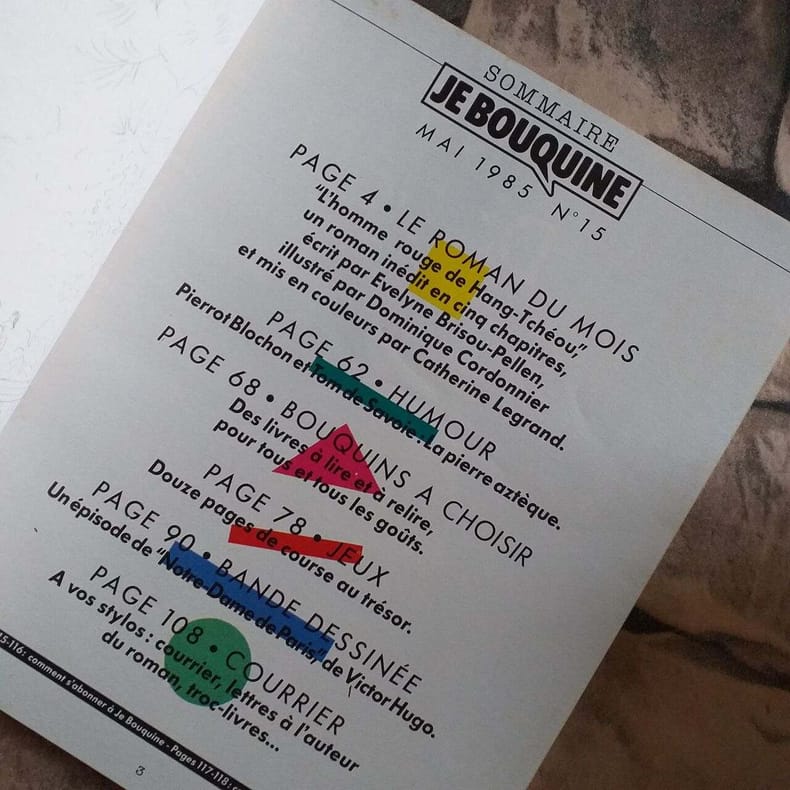 SOMMAIRE
JE BOUQUINE
MAI 1985 N°15
PAGE 4 • LE ROMAN DU MOIS
"L'homme rouge de Hang-Tchéou,"
un roman inédit en cinq chapitres,
écrit par Evelyne Brisou-Pellen,
illustré par Dominique Cordonnier
et mis en couleurs par Catherine Legrand.
PAGE 62 • HUMOUR
Pierrot Blochon et Tom de Savoie : La pierre aztèque.
PAGE 68 • BOUQUINS A CHOISIR
Des livres à lire et à relire,
pour tous et tous les goûts.
PAGE 78 • JEUX
Douze pages de course au trésor.
PAGE 90 • BANDE DESSINÉE
Un épisode de "Notre-Dame de Paris," de Victor Hugo.
PAGE 108 • COURRIER
A vos stylos : courrier, lettres à l'auteur
du roman, troc-livres...
15-116 : comment s'abonner à Je Bouquine - Pages 117-118 :
3